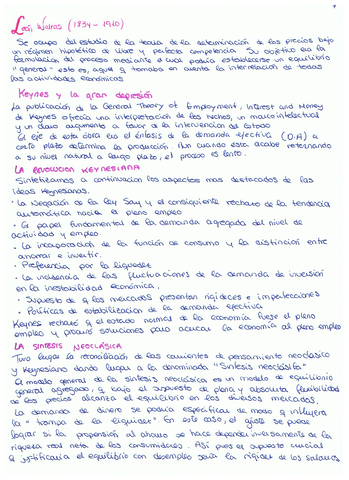 León Walras (1834 - 1910)
Se ocupa del estudio de la teoría de la determinación de los precios bajo
un régimen hipotético de libre y perfecta competencia. Su objetivo era la
formulación del proceso mediante el cual podría establecerse un equilibrio
"general" esto es, aquel q tomaba en cuenta la interrelación de todas
las actividades económicas
Keynes y la gran depresión
La publicación de la General Theory of Employment, Interest and Money
de Keynes ofrecía una interpretación de los hechos, un marco intelectual
y un claro argumento a favor de la intervención del Estado
El eje de esta obra era el énfasis de la demanda efectiva (D.A) a
corto plazo determina la producción. Aun cuando esta acabe retornando
a su nivel natural a largo plazo, el proceso es lento.
LA REVOLUCIÓN KEYNESIANA
Sintetizamos a continuación los aspectos mas destacados de las
ideas Keynesianas.
· La negación de la Ley Say y el consiguiente rechazo de la tendencia
automática hacia el pleno empleo
· El papel fundamental de la demanda agregada del nivel de
actividad y empleo
· La incorporación de la función de consumo y la distinción entre
ahorrar e invertir.
· Preferencia por la liquidez
· La incidencia de las fluctuaciones de la demanda de inversión
en la inestabilidad económica.
· Supuesto de q los mercados presentan rigideces e imperfecciones
· Políticas de estabilización de la demanda efectiva
Keynes rechazó q el estado normal de la economía fuese el pleno
empleo y procuró soluciones para acercar la economía al pleno empleo
LA SINTESIS NEOCLÁSICA
Tuvo lugar la reconciliación de las corrientes de pensamiento neoclásico
y Keynesiano dando lugar a la denominada "Síntesis neoclásica"
El modelo general de la síntesis neoclásica es un modelo de equilibrio
general agregado, q bajo el supuesto de plena y absoluta flexibilidad
de los precios alcanza el equilibrio en los diversos mercados.
La demanda de dinero se podía especificar de modo q influyera
la "trampa de la liquidez". En este caso, el ajuste se puede
lograr si la propensión al ahorro se hace depender inversamente de la
riqueza real neta de los consumidores. Así pues el supuesto crucial
q justificaría el equilibrio con desempleo sería la rigidez de los salarios